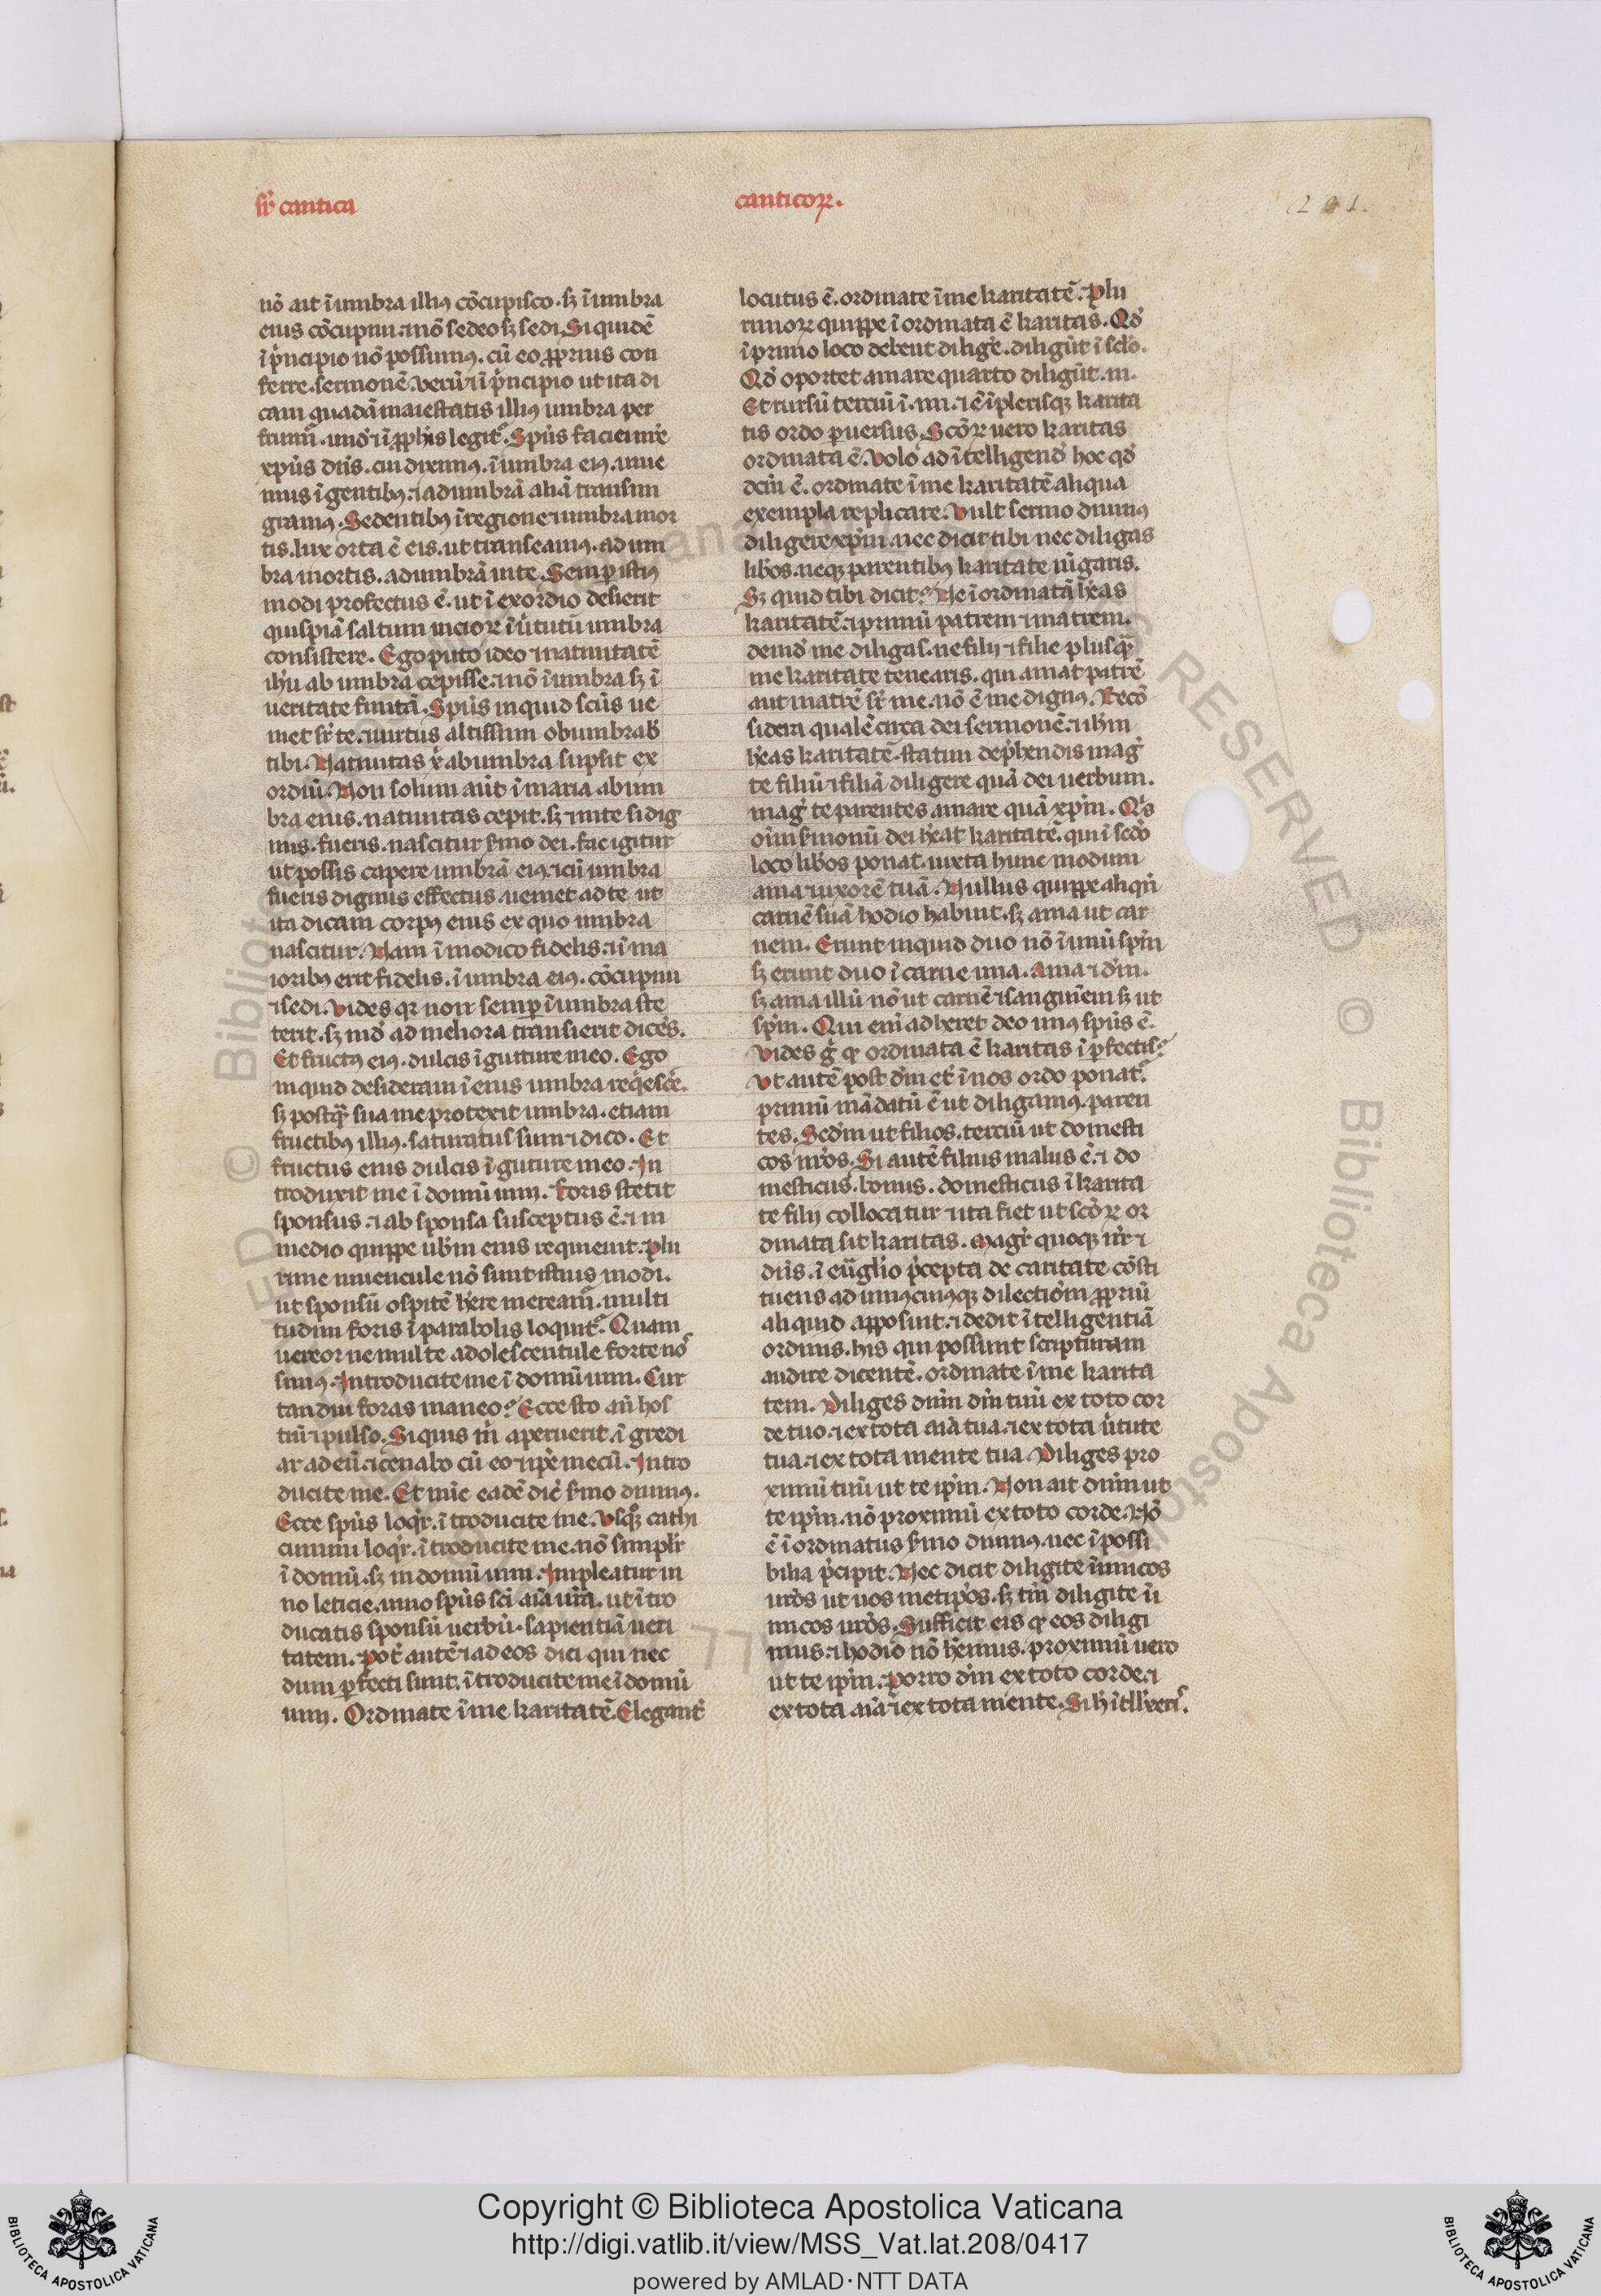 sr̄ cantica
canticoꝝ.
201.
nō ait ī umbra illiꝰ cōcupisco. sꝫ ī umbra
eius cōcupiui. ⁊ nō sedeo sꝫ sedi. Si quidē
ī p̄ncipio nō possumꝰ. cū eo ꝓprius con
ferre. sermonē. verū ⁊ ī p̄ncipio ut ita di
cam quadā maiestatis illiꝰ umbra per
fruim̄. und̄ ⁊ ī ꝓph̄is legit̄. Sp̄us faciei nr̄e
xp̄us dn̄s. cui diximꝰ. ī umbra eiꝰ. uiue
mus ī gentibꝰ. ⁊ ad umbrā aliā transmi
gramꝰ. Sedentibꝰ ī regione umbra mor
tis. lux orta ē eis. ut transeamꝰ. ad um
bra mortis. ad umbrā uite. Semꝑ istiꝰ
modi profectus ē. ut ī exordio desierit
quispiā saltum incioꝝ ī ūtutū umbra
consistere. Ego puto ideo ⁊ natiuitatē
ih̄u ab umbra cepisse. ⁊ nō ī umbra sꝫ ī
ueritate finitā. Sp̄us inquid sc̄us ue
niet sr̄ te. ⁊ uirtus altissimi obumbrab̄
tibi. Natiuitas x̄ ab umbra supsit ex
ordiū. Non solum aūt ī maria ab um
bra eius. natiuitas cepit. sꝫ ⁊ in te si dig
nus. fueris. nascitur s̄mo dei. fac igitur
ut possis capere umbrā eiꝰ. ⁊ cū umbra
fueris dignus effectus. ueniet ad te ut
ita dicam corpꝰ eius ex quo umbra
nascitur. Nam ī modico fidelis. ⁊ ī ma
ioribꝰ erit fidelis. ī umbra eiꝰ. cōcupiui
⁊ sedi. Vides qꝛ non semꝑ ī umbra ste
terit. sꝫ īnd̄ ad meliora transierit dicēs.
Et fructꝰ eiꝰ. dulcis ī gutture meo. Ego
inquid desideraui ī eius umbra reqͥesc̄e.
sꝫ postqͣ sua me protexit umbra. etiam
fructibꝰ illiꝰ. saturatus sum ⁊ dico. Et
fructus eius dulcis ī guture meo. In
troduxit me ī domū uini. Foris stetit
sponsus. ⁊ ab sponsa susceptus ē. ⁊ in
medio quippe ub̄ium eius requieuit. Plu
rime iuuencule nō sunt istius modi.
ut sponsū ospitē h̄ere mereant̄. multi
tudini foris ī parabolis loquit̄. Quam
uereor ne multe adolescentule forte nō
simꝰ. Introducite me ī domū uini. Cur
tandiu foras maneo? Ecce sto an̄ hos
tiū ⁊ pulso. Si quis m̄ aperuerit. ī gredi
ar ad eū. ⁊ cenabo cū eo ⁊ ip̄e mecū. Intro
ducite me. Et nūc eadē dic̄ s̄mo diuinꝰ.
Ecce sp̄us loqͥr. ī troducite me. Vsqꝫ cathi
cumini loqͥr. ī troducite me. nō simplr̄
ī domū. sꝫ in domū uini. Impleatur ui
no leticie. uino sp̄us sc̄i aīa ur̄a. ut ī tro
ducatis sponsū uerbū. sapientiā ueri
tatem. Pot̄ autē ⁊ ad eos dici qui nec
dum ꝑfecti sunt. ī troducite me ī domū
uini. Ordinate ī me karitatē. Elegant̄
locutus ē. ordinate ī me karitatē. Plu
rimoꝝ quippe ī ordinata ē karitas. Qd̄
ī primo loco debent diliḡe. diligūt ī sc̄do.
Qd̄ oportet amare quarto diligūt. iii.
Et rursū terciū ī. iiii. ⁊ ē ī plerisqꝫ karita
tis ordo ꝑuersus. Sc̄oꝝ uero karitas
ordinata ē. Volo ad ī telligend̄ hoc qd̄
dc̄m ē. ordinate ī me karitatē aliqua
exempla replicare. Vult sermo diuinꝰ
diligere xp̄m. nec dicit tibi nec diligas
lib̄os. neqꝫ parentibꝰ karitate iūgaris.
Sꝫ quid tibi dicit? Ne ī ordinatā h̄eas
karitatē. ⁊ primū patrem ⁊ matrem.
deind̄ me diligas. ne filij ⁊ filie plusqͣ
me karitate tenearis. qui amat patrē
aut matrē sr̄ me. nō ē me dignꝰ. Recō
sidera qualē circa dei sermonē. ⁊ ub̄m
h̄eas karitatē. statim dep̄hendis mag̊
te filiū ⁊ filiā diligere quā dei uerbum.
mag̊ te parentes amare quā xp̄m. Qͥs
oīm s̄monū dei h̄eat karitatē. qui ī sc̄do
loco lib̄os ponat. iuxta hunc modum
ama ⁊ uxorē tuā. Nullus quippe aliqn̄
carnē suā hodio habuit. sꝫ ama ut car
nem. Erunt inquid duo nō ī unū spm̄
sꝫ erunt duo ī carne una. ama ⁊ dm̄.
sꝫ ama illū nō ut carnē ⁊ sanguinem sꝫ ut
spm̄. Qui eni adheret deo unꝰ sp̄us ē.
Vides g̊ qꝛ ordinata ē karitas ī ꝑfectis?
Vt autē post dm̄ et̄ ī nos ordo ponat̄
primū mādatū ē ut diligamꝰ. paren
tes. Sc̄dm ut filios. terciū ut domesti
cos nr̄os. Si autē filius malus ē. ⁊ do
mesticus. bonus. domesticus ī karita
te filij collocatur ⁊ ita fiet ut sc̄oꝝ or
dinata sit karitas. Magr̄ quoqꝫ nr̄ ⁊
dn̄s. ī euāglio p̄cepta de caritate cōsti
tuens ad unꝰcuiꝰqꝫ dilectiōm ꝓpriū
aliquid apposuit. ⁊ dedit ī telligentiā
ordinis. his qui possunt scripturam
audire dicentē. ordinate ī me karita
tem. Diliges dnm̄ dm̄ tuū ex toto cor
de tuo. ⁊ ex tota aīa tua. ⁊ ex tota ūtute
tua. ⁊ ex tota mente tua. Diliges pro
ximū tuū ut te ipm̄. Non ait dnm̄ ut
te ipm̄. nō proximū ex toto corde. Nō
ē ī ordinatus s̄mo diuinꝰ. nec ī possi
bilia p̄cipit. Nec dicit diligite inimicos
ur̄os ut uos metip̄os. sꝫ tm̄ diligite ī
micos ur̄os. Sufficit eis qꝛ eos diligi
mus. ⁊ hodio nō h̄emus. proximū uero
ut te ipm̄. Porro dm̄ ex toto corde. ⁊
ex tota aīa ⁊ ex tota mente. Si h̄ ītll̄exeris.
Copyright © Biblioteca Apostolica Vaticana
http://digi.vatlib.it/view/MSS_Vat.lat.208/0417
powered by AMLAD·NTT DATA
BIBLIOTECA APOSTOLICA VATICANA
BIBLIOTECA APOSTOLICA VATICANA